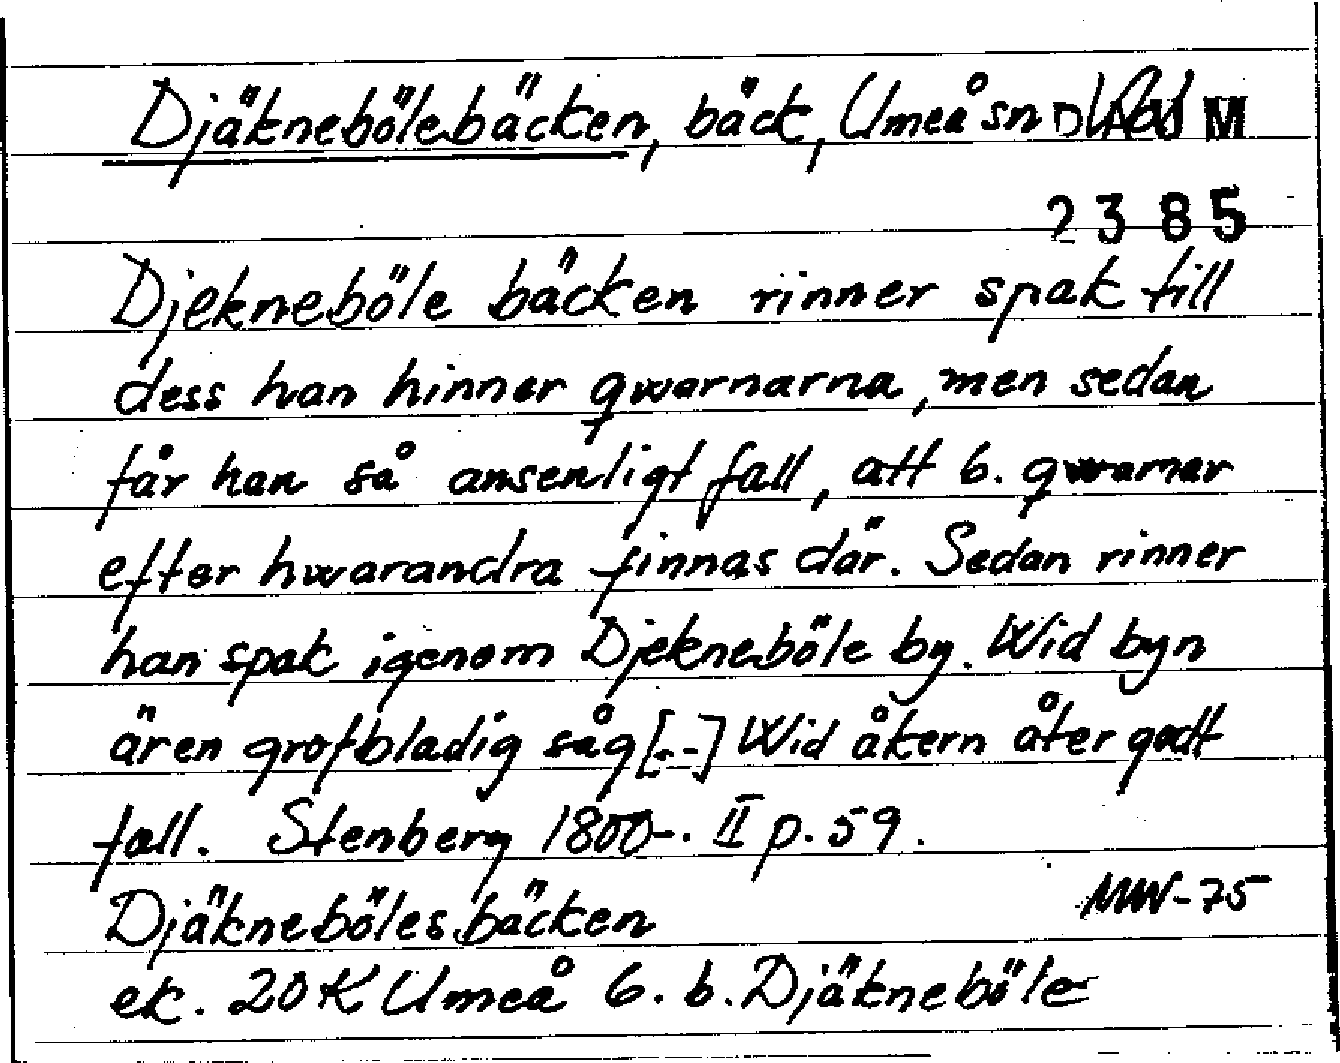 Djäknebölebäcken, bäck, Umeå sn
2385
Djekneböle bäcken rinner spak till
dess han hinner qwarnarna, men sedan
får han så ansenligt fall, att 6. qwarnar
efter hwarandra finnas där. Sedan rinner
han spak igenom Djekneböle by. Wid byn
är en grofbladig såg [--] Wid åkern åter godt
fall. Stenberg 1800-. II p. 59.
MW-75
Djäknebölesbäcken
ek. 20 K Umeå 6. b. Djäkneböle